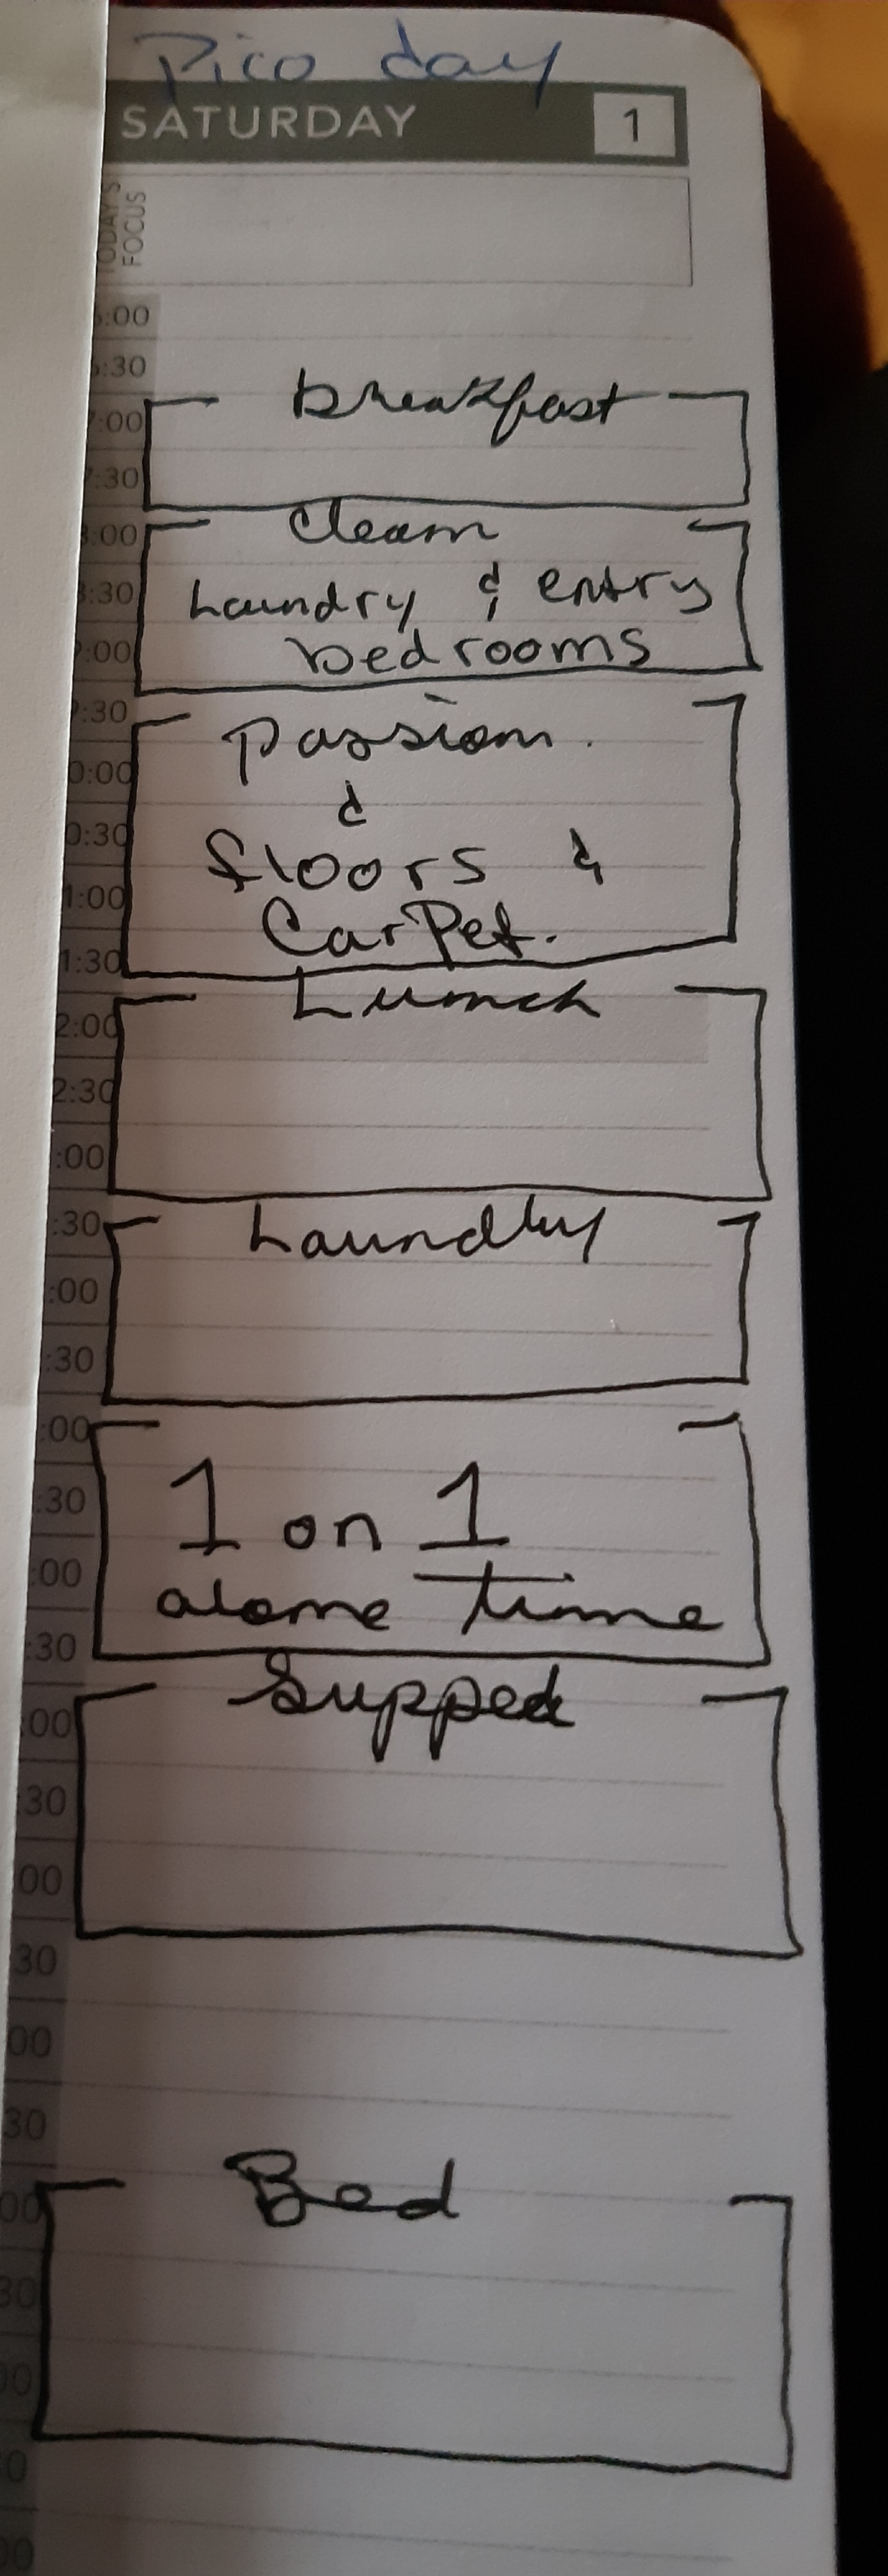 Pico day
SATURDAY 1
TODAY'S
FOCUS
:00
:30
breakfast
:00
7:30
Clean
8:00
8:30 Laundry & entry
:00 bedrooms
:30
Passion.
0:00
&
0:30 floors &
1:00
Carpet.
1:30
Lunch
2:00
2:30
:00
:30 Laundry
:00
:30
:00
:30 1 on 1
:00
alone time
:30
Supped
:00
30
00
30
00
30
Bed
00
30
00
0
00